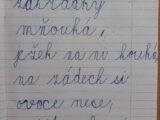 zahradny
mňouká,
ježek na ni kouká,
na zádech si
ovoce nese,